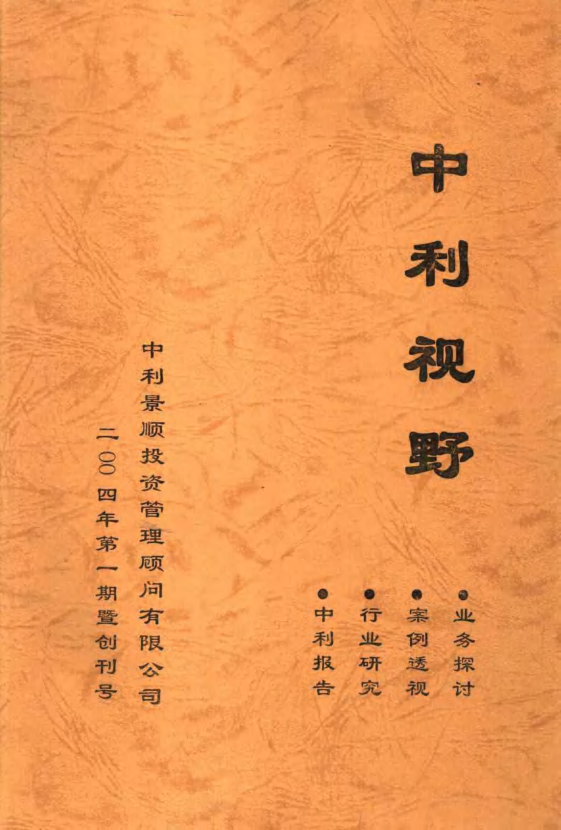 中利视野
●业务探讨
●案例透视
●行业研究
●中利报告
中利景顺投资管理顾问有限公司
二〇〇四年第一期暨创刊号